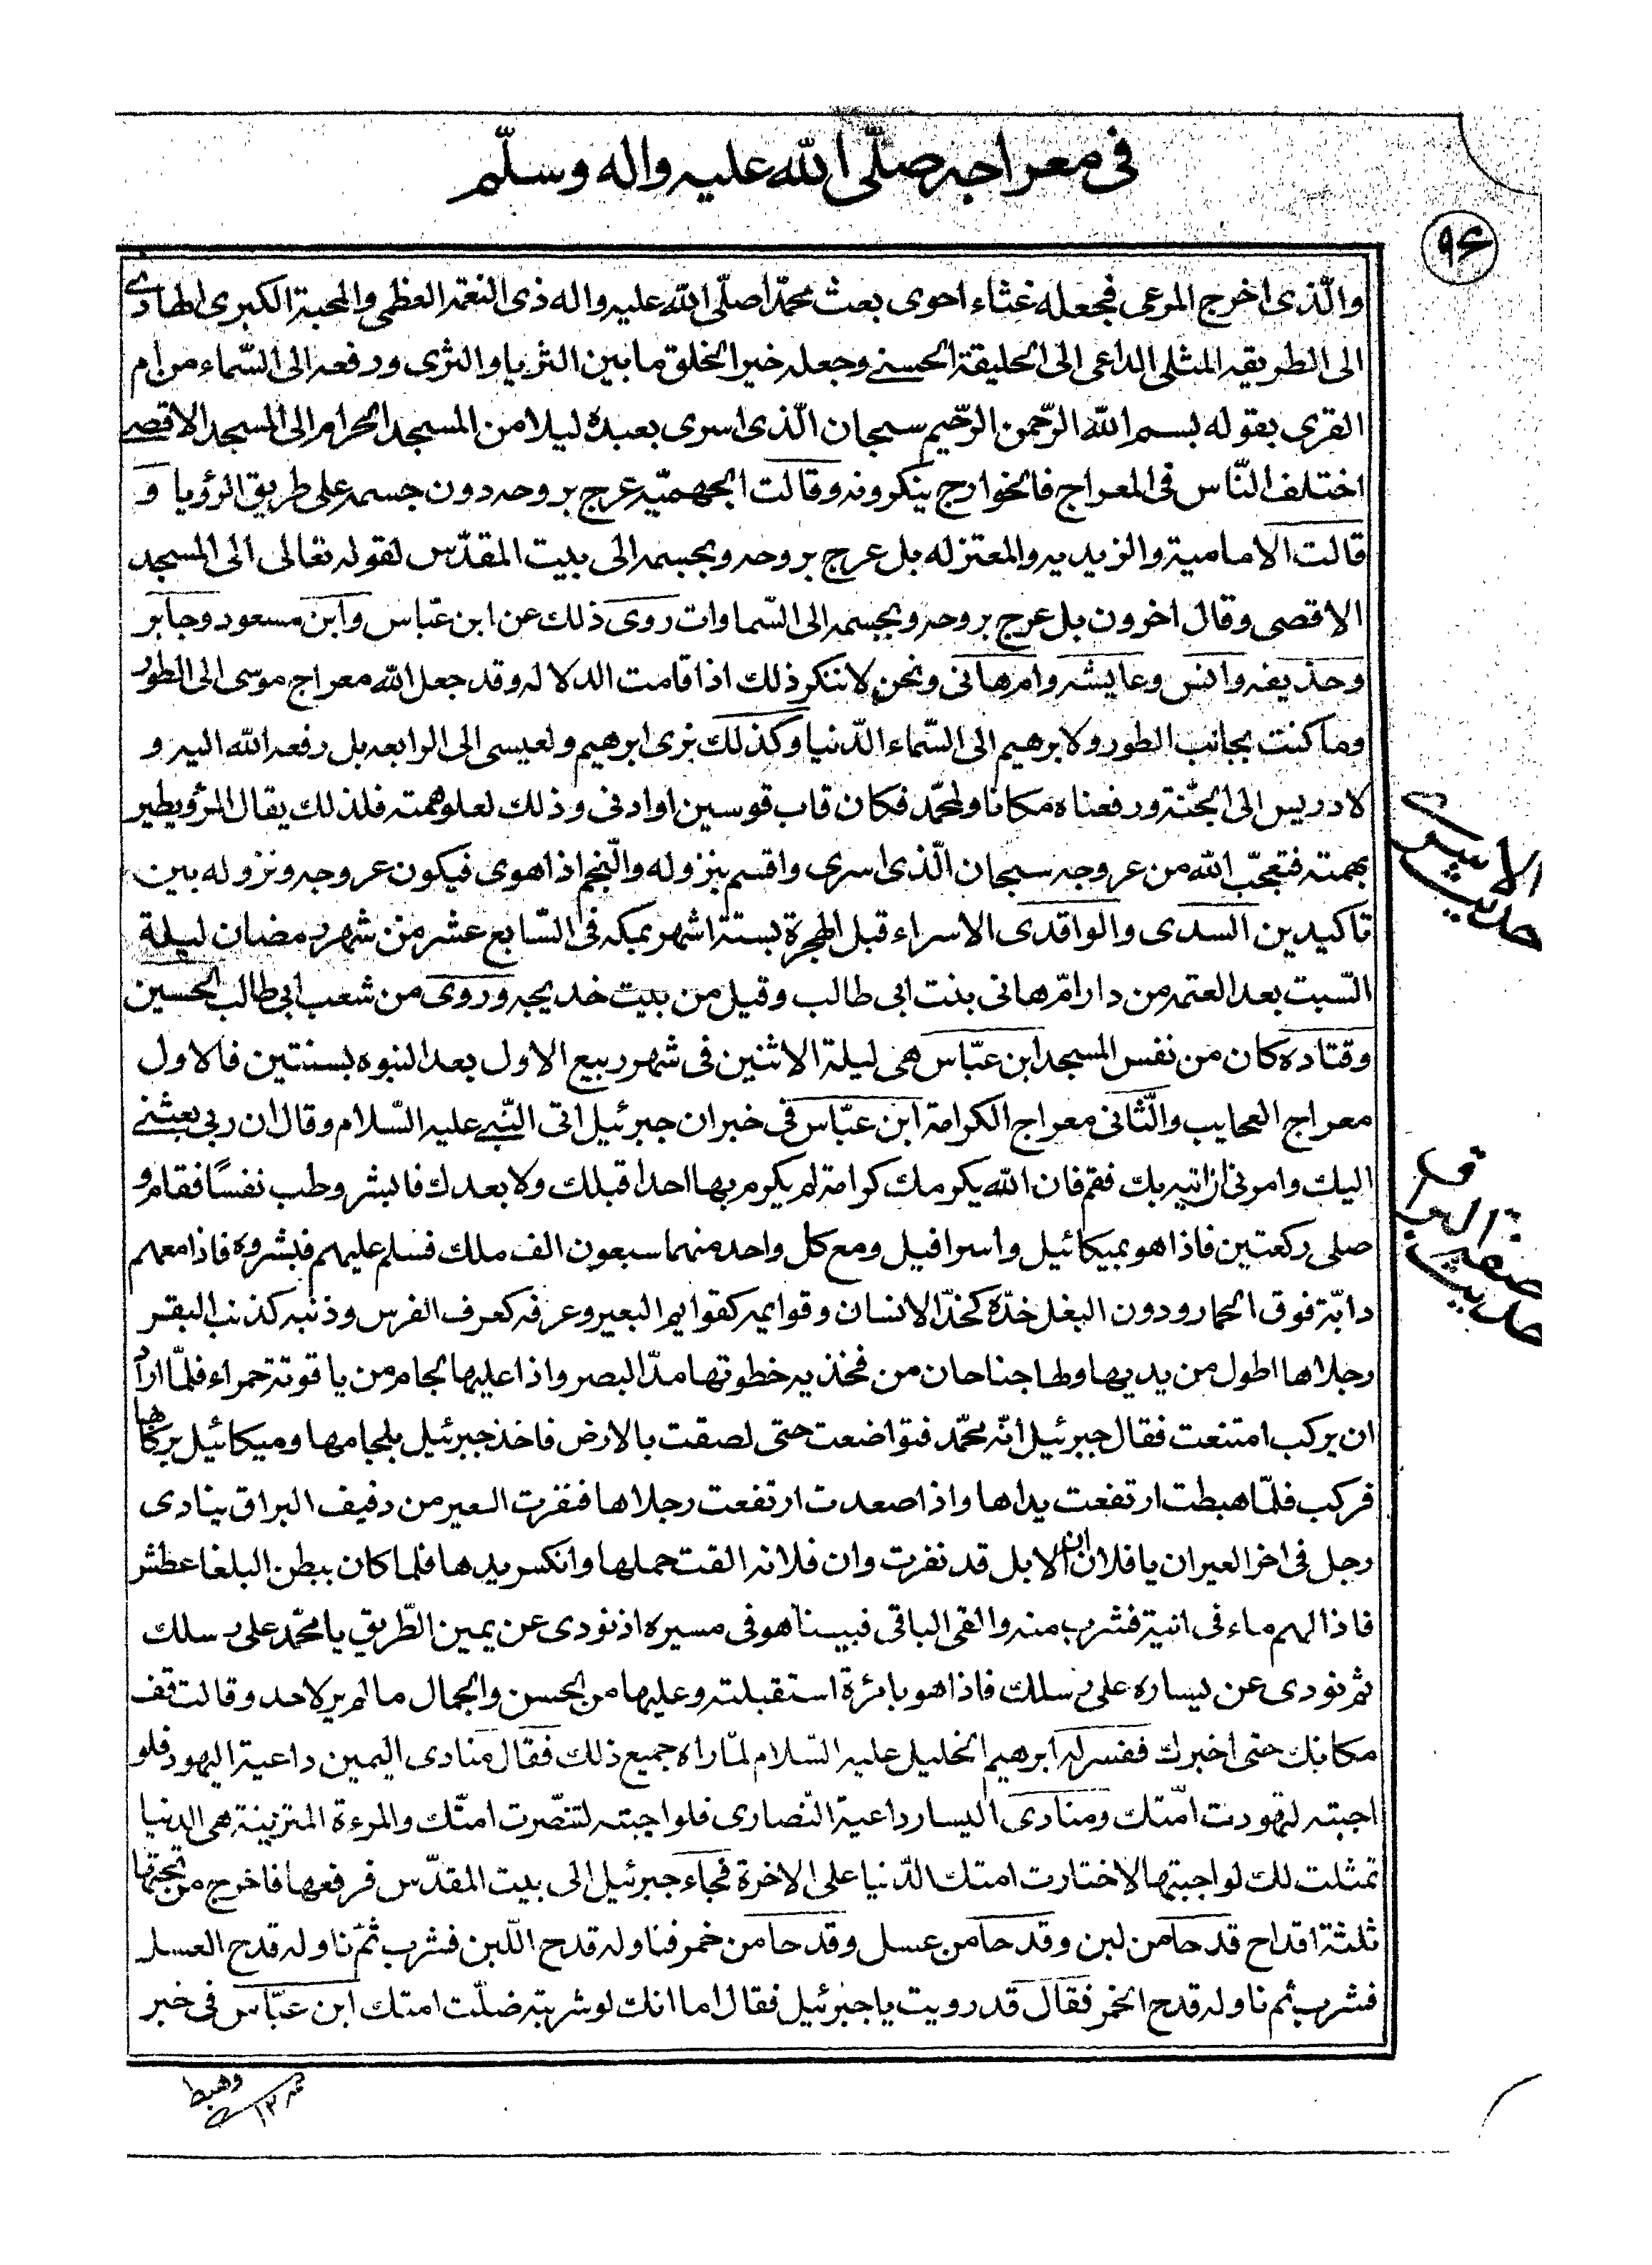 في معراجه صلّى الله عليه واله وسلّم
٩۶
والّذى اخرج المرعى فجعله غثاء احوى بعث محمّدا صلّى الله عليه واله ذى النعمة العظمى والمحبة الكبرى الهادى
الى الطريقه المثلى الداعى الى الخليقة الحسنى وجعله خير الخلق ما بين الثريا والثرى ورفعه الى السّماء من ام
القرى بقوله بسم الله الرّحمن الرّحيم سبحان الّذى اسرى بعبده ليلا من المسجد الحرام الى المسجد الاقصى
اختلف النّاس فى المعراج فالخوارج ينكرونه وقالت الجهميّه عرج بروحه دون جسمه على طريق الرؤيا و
قالت الامامية والزيديه والمعتزله بل عرج بروحه وبجسمه الى بيت المقدّس لقوله تعالى الى المسجد
الاقصى وقال اخرون بل عرج بروحه وبجسمه الى السّماوات روى ذلك عن ابن عبّاس وابن مسعود وجابر
وحذيفه وانس وعايشه وامهانى ونحن لاننكر ذلك اذا قامت الدلاله وقد جعل الله معراج موسى الى الطور
وما كنت بجانب الطور ولابرهيم الى السّماء الدّنيا وكذلك نرى ابرهيم ولعيسى الى الرابعه بل رفعه الله اليه و
لادريس الى الجنّة ورفعناه مكانا ولمحمّد فكان قاب قوسين او ادنى وذلك لعلو همته فلذلك يقال المرؤ يطير
بهمته فتعجّب الله من عروجه سبحان الّذى اسرى واقسم بنزوله والنّجم اذا هوى فيكون عروجه ونزوله بين
تاكيدين السدى والواقدى الاسراء قبل الهجرة بستة اشهر بمكه فى السّابع عشر من شهر رمضان ليلة
السّبت بعد العتمه من دار امّ هانى بنت ابى طالب وقيل من بيت خديجه وروى من شعب ابى طالب الحسين
وقتاده كان من نفس المسجد ابن عبّاس هى ليلة الاثنين فى شهر ربيع الاول بعد النبوه بسنتين فالاول
معراج العجايب والثّانى معراج الكرامة ابن عبّاس فى خبر ان جبرئيل اتى النّبى عليه السّلام وقال ان ربى بعثنى
اليك وامرنى ان اتيه بك فقم فان الله يكرمك كرامة لم يكرم بها احدا قبلك ولا بعدك فابشر وطب نفسًا فقام و
صلى ركعتين فاذا هو بميكائيل واسرافيل ومع كل واحد منهما سبعون الف ملك فسلم عليهم فبشروه فاذا معهم
دابّة فوق الحمار ودون البغل خدّه كخدّ الانسان وقوايمه كقوايم البعير وعرفه كعرف الفرس وذنبه كذنب البقر
رجلاها اطول من يديها ولها جناحان من فخذيه خطوتها مدّ البصر واذا عليها لجام من ياقوتة حمراء فلمّا اراد
ان يركب امتنعت فقال جبرئيل انّه محمّد فتواضعت حتى لصقت بالارض فاخذ جبرئيل بلجامها وميكائيل بركابها
فركب فلمّا هبطت ارتفعت يداها واذا صعدت ارتفعت رجلاها فنفرت العير من دفيف البراق ينادى
رجل فى اخر العير ان يا فلان ان الابل قد نفرت وان فلانه القت حملها وانكسر يدها فلما كان ببطن البلغا عطش
فاذا لهم ماء فى انية فشرب منه والقى الباقى فبينا هو فى مسيره اذ نودى عن يمين الطّريق يا محمّد على رسلك
ثم نودى عن يساره على رسلك فاذا هو بامرٔة استقبلته وعليها من الحسن والجمال ما لم ير لاحد وقالت قف
مكانك حتى اخبرك ففسر له ابرهيم الخليل عليه السّلام لمّا راه جميع ذلك فقال منادى اليمين داعية اليهود فلو
اجبته لتهودت امّتك ومنادى اليسار داعية النّصارى فلو اجبته لتنصّرت امتّك والمرءة المتزينة هى الدنيا
تمثلت لك لو اجبتها لاختارت امتك الدّنيا على الاخرة فجاء جبرئيل الى بيت المقدّس فرفعها فاخرج من تحتها
ثلثة اقداح قدحا من لبن وقدحا من عسل وقدحا من خمر فناوله قدح اللّبن فشرب ثمّ ناوله قدح العسل
فشرب ثم ناوله قدح الخمر فقال قد رويت يا جبرئيل فقال اما انك لو شربته ضلّت امتك ابن عبّاس فى خبر
وهبط